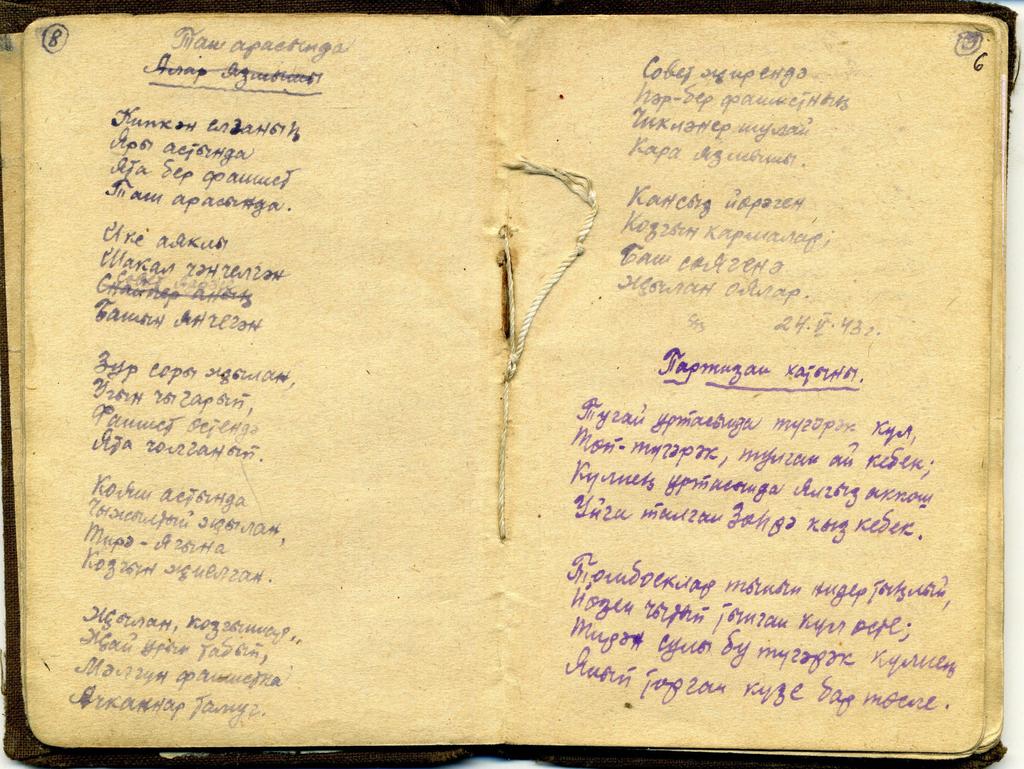 8
Таш арасында
Алар язмышы
Кипкән елганың
Яры астында
Ята бер фашист
Таш арасында.
Ике аяклы
Шакал чәнчелгән
Снайпер аның
Башын янчегән
Зур соры җылан,
Угын чыгарып,
Фашист өстендә
Ята чолганып.
Кояш астында
Чыжылдый җылан,
Тирә-ягына
Козгын җиелган.
Җылан, козгыннар..
Җай урын табып,
Мәлгун фашистка
Ачканнар тамуг.
6
Совет җирендә
Һәр-бер фашистның
Чикләнер шулай
Кара язмышы.
Кансыз йөрәген
Козгын кармалар;
Баш сөягенә
Җылан оялар.
24.V.43г.
Партизан хатыны.
Тугай уртасында түгәрәк күл,
Төп-түгәрәк, тулган ай кебек;
Күлнең уртасында ялгыз аккош
Уйга талган Зөһрә кыз кебек.
Томбоеклар тынын нидер тыңлый,
Йөзен чытып тынган күл өсте;
Тирән сулы бу түгәрәк күлнең
Янып торган күзе бар төсле.